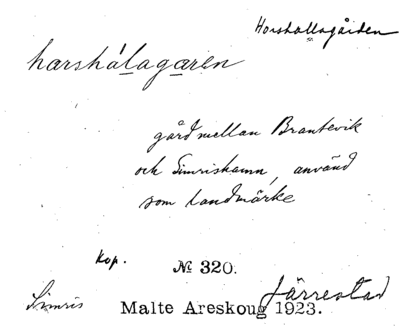 Horshallagården
harshálagaren
gård mellan Brantevik
och Simrishamn, använd
som landmärke
Kop.
№ 320.
Simris Malte Areskoug 1923. Järrestad